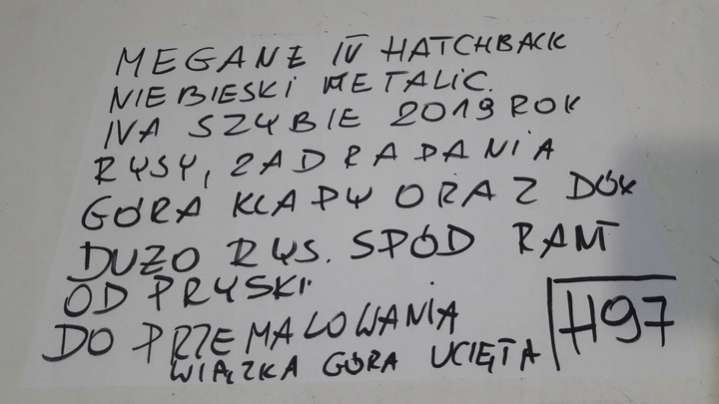 MEGANE IV HATCHBACK
NIEBIESKI METALIC.
NA SZYBIE 2019 ROK
RYSY, ZADRAPANIA
GÓRA KLAPY ORAZ DÓŁ
DUZO RYS. SPÓD RANT
ODPRYSKI
DO PRZEMALOWANIA
WIĄZKA GÓRA UCIĘTA
H97